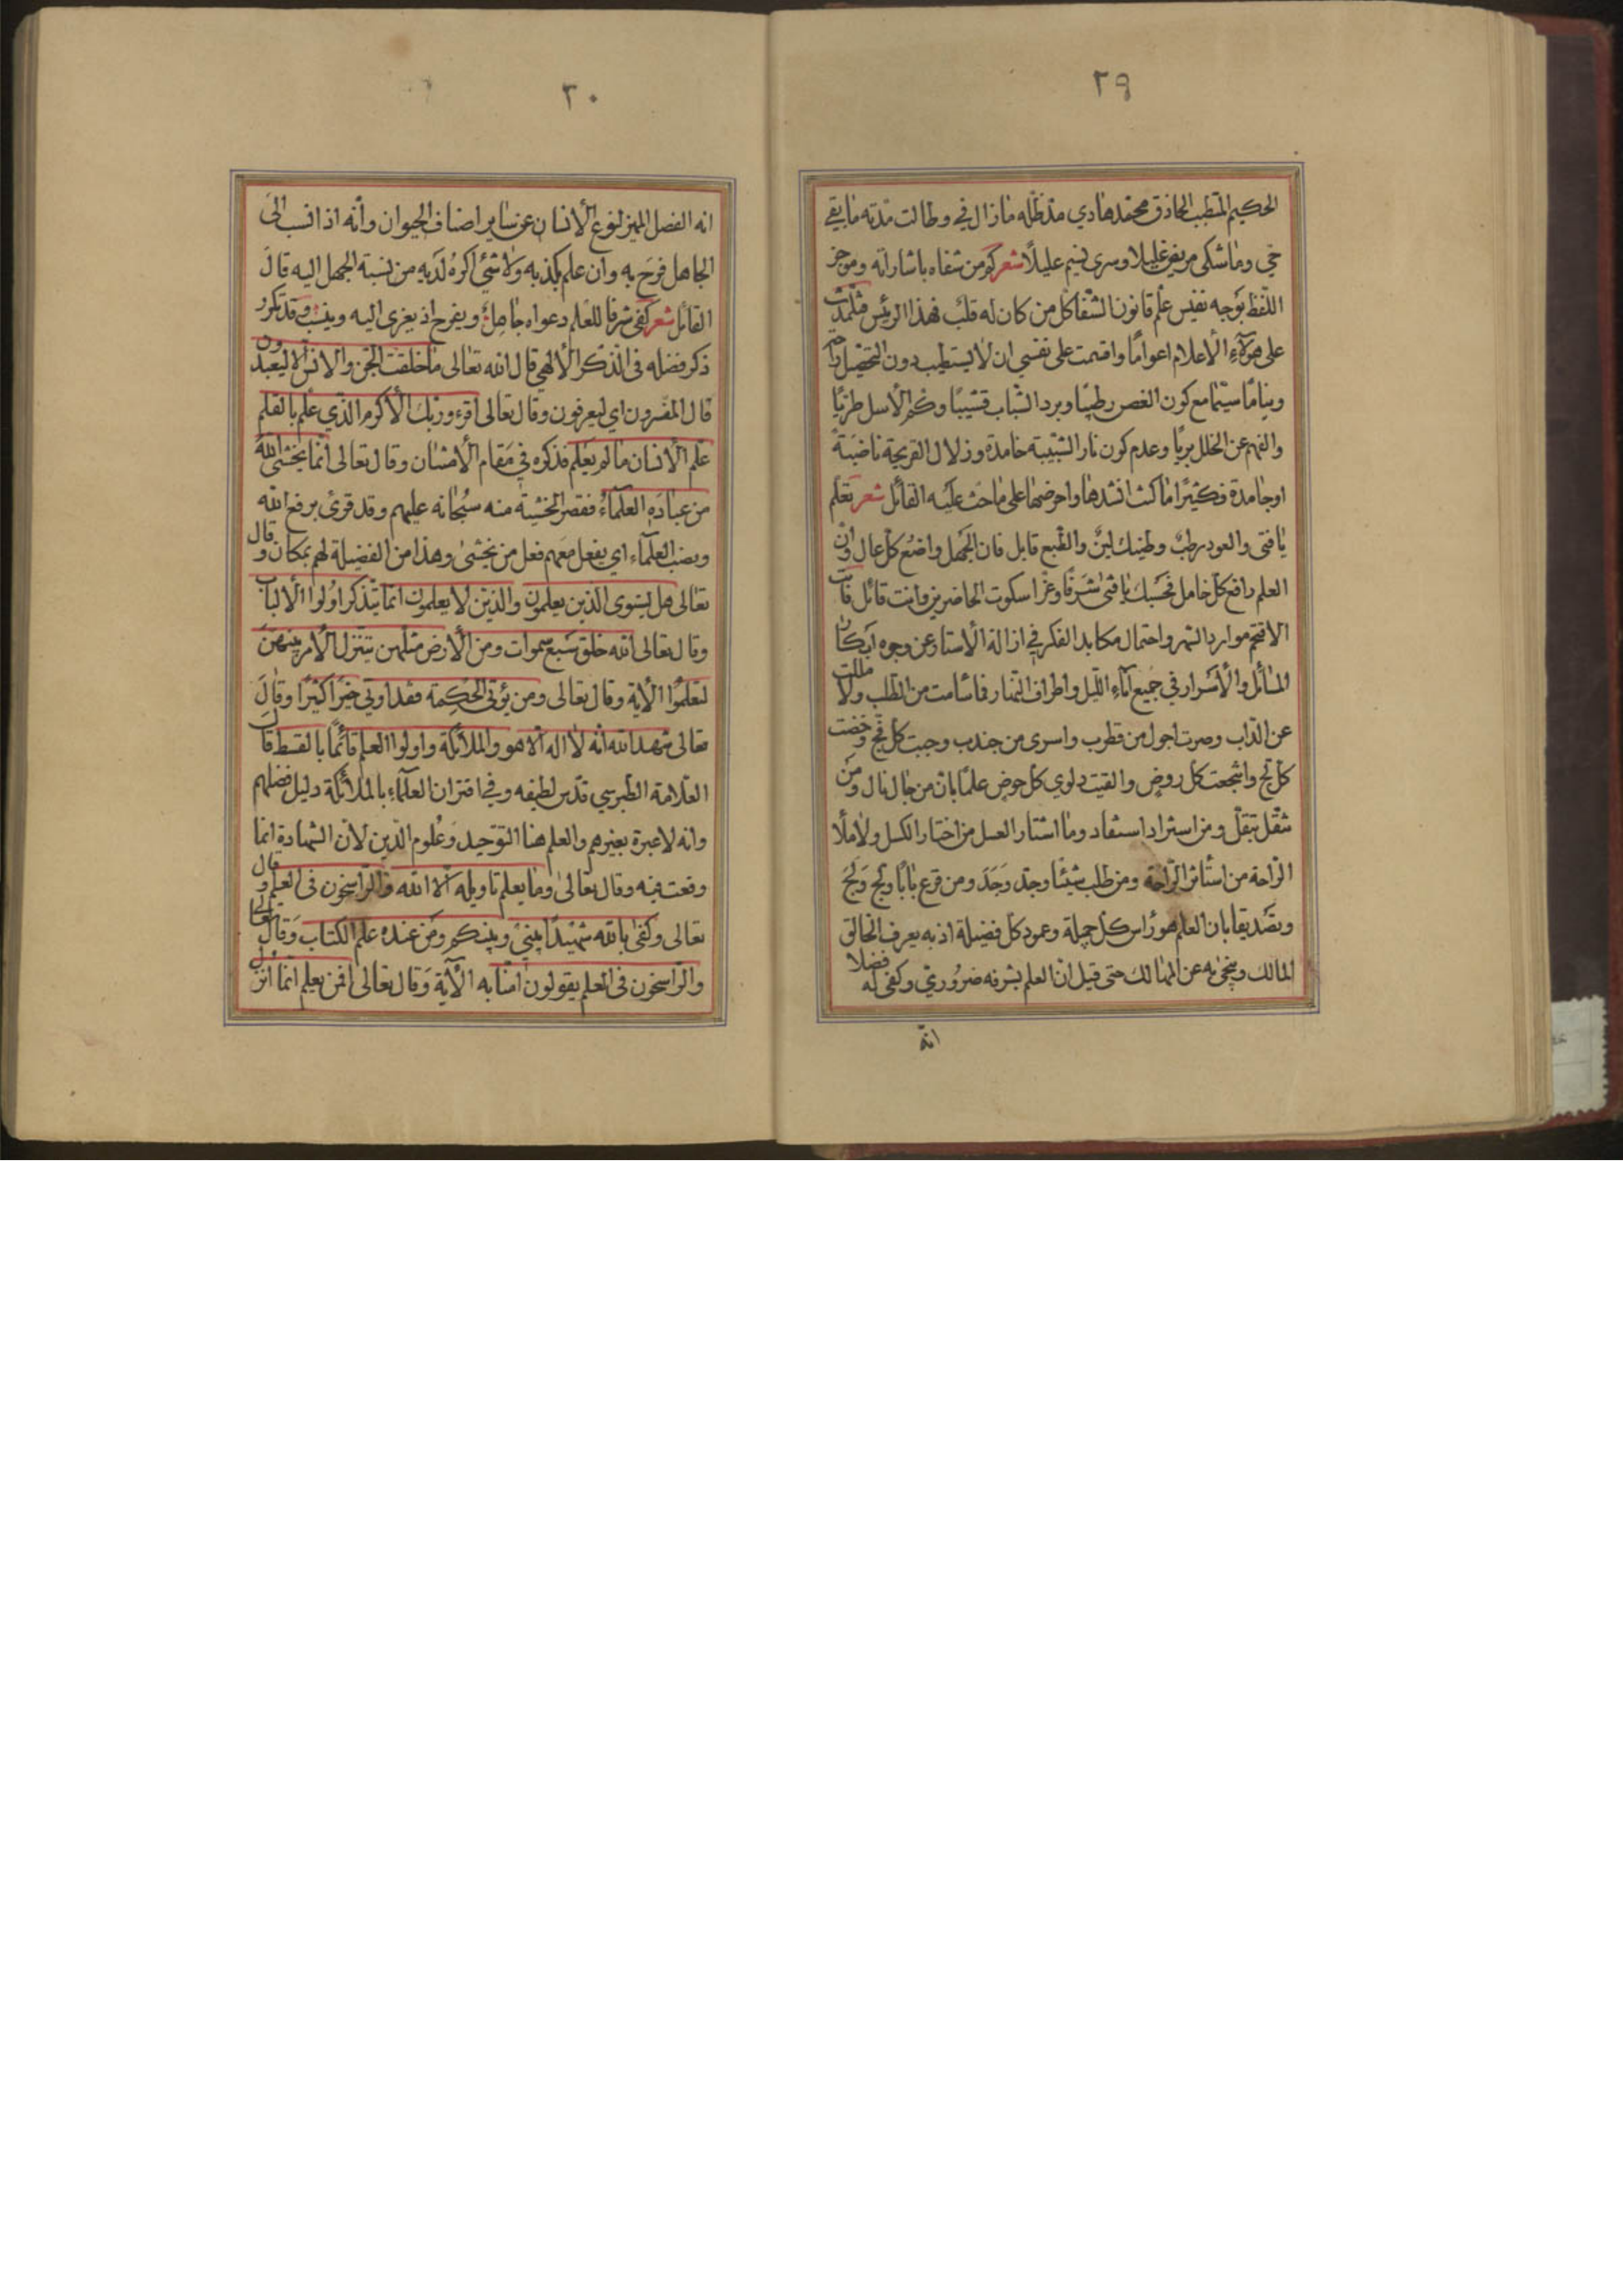 ٢٩
الحكيم المتطبب الحاذق محمد هادي مد ظله مازال في وطالت مدته ما بقي
حي وما شكى مريض غليلا وسرى نسيم عليلا شعر كم من شفاه باشاراته وموجز
اللفظ بوجه نفيس علم قانون الشفا كل من كان له قلب فهذا الرئيس فتلمذت
على هؤلاء الأعلام اعواما واقسمت على نفسي ان لا يستطب دون التحصيل
ومناما سيما مع كون الغصن رطيبا وبرد الشباب قشيبا وكم الأسل طريا
والفهم عن الخلل بريا وعدم كون نار الشبيبة خامدة وزلال القريحة ناضبة
او جامدة فكثيرا ما كنت انشدها واحرضها على ما حث عليه القائل شعر تعلم
يا فتى والعود رطب وطينك لين والطبع قابل فان الجهل واضع كل عال وان
العلم رافع كل خامل فحسبك يا فتى شرفا وعزا سكوت الحاضرين وانت قائل فاب
الا فتح موارد السهر واحتمال مكابد الفكر في ازالة الأستار عن وجوه ابكار
المسائل والأسرار في جميع آناء الليل واطراف النهار فما سأمت من الطلب ولا مللت
عن الداب وصرت اجول من قطرب واسرى من جندب وجبت كل فج وخضت
كل لج وانتجعت كل روض والقيت دلوي كل حوض علما بان من جال نال ومن
تنقل تبقل ومن استزاد استفاد وما اشتار العسل من اختار الكسل ولا ملأ
الراحة من استأثر الراحة ومن طلب شيئا وجد وجد ومن قرع بابا ولج ولج
وتصديقا بان العلم هو راس كل جميلة وعمود كل فضيلة اذ به يعرف الخالق
المالك وينجى به عن المهالك حتى قيل ان العلم بشرفه ضروري وكفى له فضلا
انه
٣٠
انه الفصل المميز لنوع الأنسان عن ساير اصناف الحيوان وأنه اذا انسب الى
الجاهل فرح به وان علم بكذبه ولا شئ اكره لديه من نسبة الجهل اليه قال
القائل شعر كفى شرفا للعلم دعواه جاهل ويفرح اذ يعزى اليه وينسب وقد تكرر
ذكر فضله في الذكر الألهي قال الله تعالى ما خلقت الجن والانس الا ليعبدون
قال المفسرون اي ليعرفون وقال تعالى اقرء وربك الأكرم الذي علم بالقلم
علم الأنسان ما لم يعلم فذكره في مقام الأمتنان وقال تعالى انما يخشى الله
من عباده العلماء فقصر الخشية منه سبحانه عليهم وقد قرئ برفع الله
ونصب العلماء اي يفعل معهم فعل من يخشى وهذا من الفضيلة لهم بمكان وقال
تعالى هل يستوى الذين يعلمون والذين لا يعلمون انما يتذكر اولوا الألباب
وقال تعالى الله خلق سبع سموات ومن الأرض مثلهن يتنزل الأمر بينهن
لتعلموا الاية وقال تعالى ومن يؤتى الحكمة فقد اوتي خيرا كثيرا وقال
تعالى شهد الله انه لا اله الا هو والملائكة واولوا العلم قائما بالقسط قال
العلامة الطبرسي قدس لطيفه وفي اقتران العلماء بالملائكة دليل فضلهم
وانه لا عبرة بغيرهم والعلم هنا التوحيد وعلوم الدين لان الشهادة انما
وقعت فيه وقال تعالى وما يعلم تاويله الا الله والراسخون في العلم وقال
تعالى وكفى بالله شهيدا بيني وبينكم ومن عنده علم الكتاب وقال تعالى
والراسخون في العلم يقولون امنا به الآية وقال تعالى افمن يعلم انما انزل